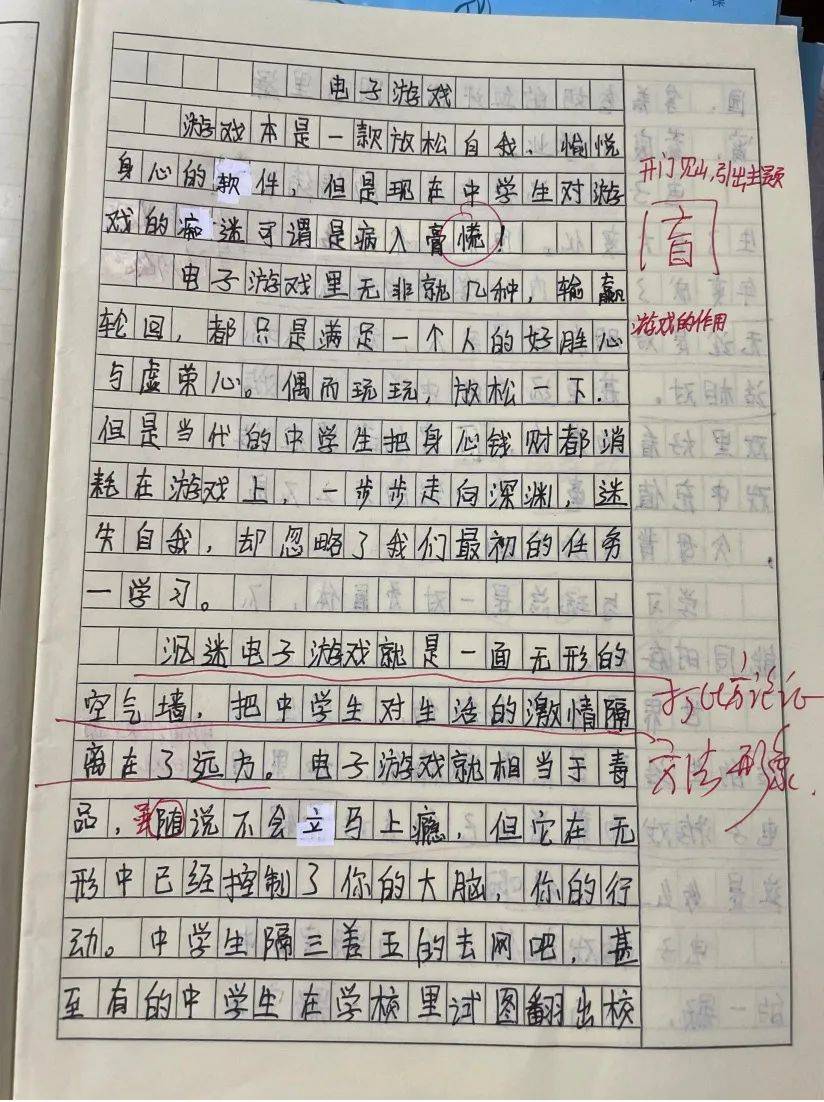 电子游戏
游戏本是一款放松自我、愉悦
身心的软件，但是现在中学生对游
戏的痴迷可谓是病入膏慌！
电子游戏里无非就几种，输赢
轮回，都只是满足一个人的好胜心
与虚荣心。偶而玩玩，放松一下.
但是当代的中学生把身心钱财都消
耗在游戏上，一步步走向深渊，迷
失自我，却忽略了我们最初的任务
一学习。
沉迷电子游戏就是一面无形的
空气墙，把中学生对生活的激情隔
离在了远方。电子游戏就相当于毒
品，虽随说不会立马上瘾，但它在无
形中已经控制了你的大脑，你的行
动。中学生隔三差五的去网吧，甚
至有的中学生在学校里试图翻出校
开门见山，引出主题
肓
游戏的作用
打比方论证
方法形象.